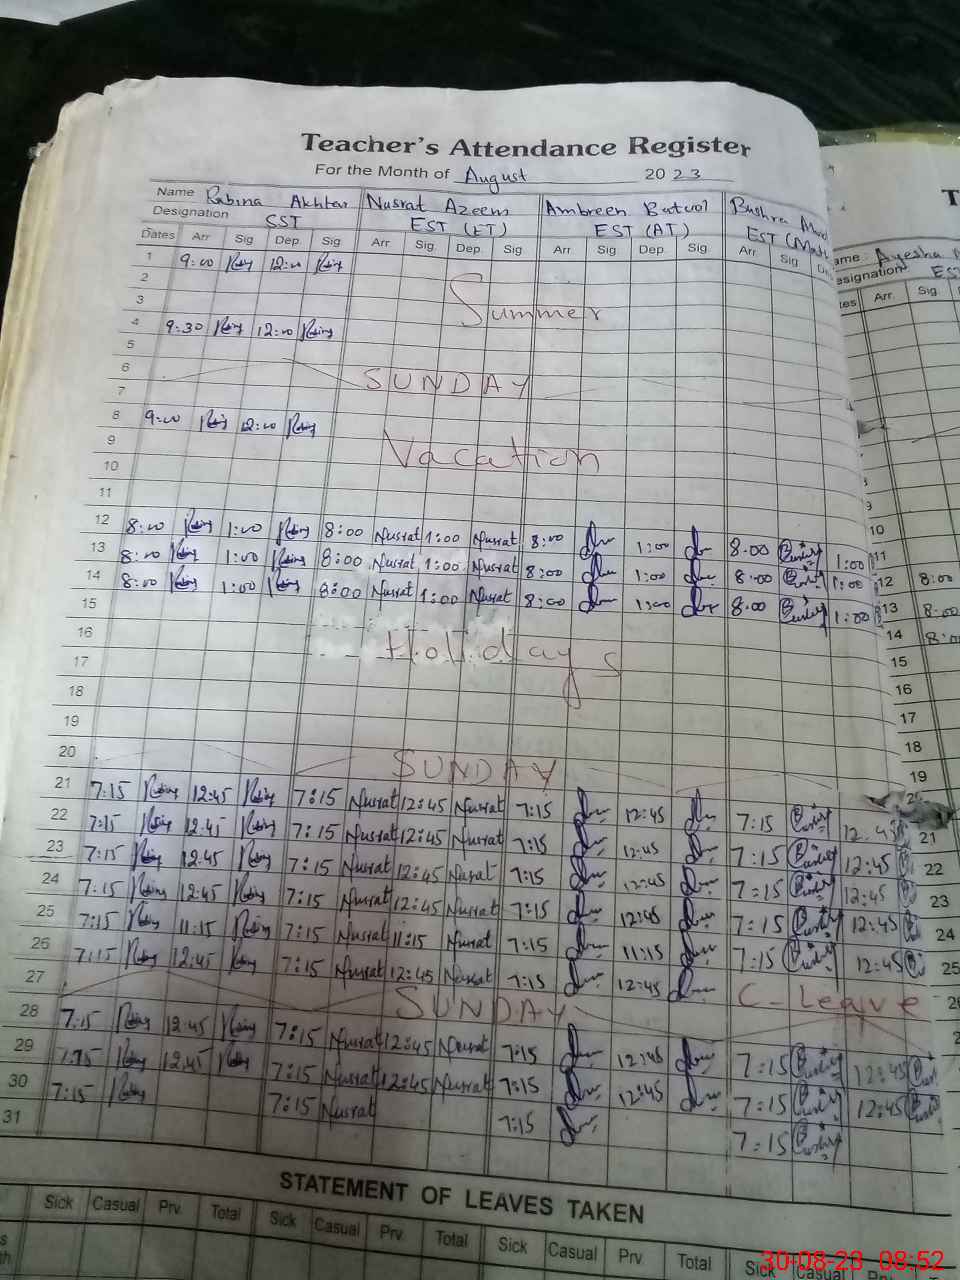 Teacher's Attendance Register
For the Month of August 2023
Name Rabina Akhtar Nusrat Azeem Ambreen Batool Bushra
Designation SST EST (ET) EST (AT) EST (Math
Dates Arr Sig Dep. Sig Arr Sig. Dep. Sig Arr Sig Dep. Sig. Arr. Sig
1 9:00 12:00
2 Summer
3
4 9:30 12:00
5
6 SUNDAY
7
8 9:00 12:00
9 Vacation
10
11
12 8:00 1:00 8:00 Nusrat 1:00 Nusrat 8:00 1:00 8.00 1:00
13 8:00 1:00 8:00 Nusrat 1:00 Nusrat 8:00 1:00 8.00 1:00
14 8:00 1:00 8:00 Nusrat 1:00 Nusrat 8:00 1:00 8.00 1:00
15
16 Holidays
17
18
19
20 SUNDAY
21 7:15 12:45 7:15 Nusrat 12:45 Nusrat 7:15 12:45 7:15 12.45
22 7:15 12.45 7:15 Nusrat 12:45 Nusrat 7:15 12:45 7:15 12:45
23 7:15 12.45 7:15 Nusrat 12:45 Nusrat 7:15 12:45 7:15 12:45
24 7:15 12:45 7:15 Nusrat 12:45 Nusrat 7:15 12:45 7:15 12:45
25 7:15 11:15 7:15 Nusrat 11:15 Nusrat 7:15 11:15 7:15 12:45
26 7:15 12:45 7:15 Nusrat 12:45 Nusrat 7:15 12:45 C-Leave
27 SUNDAY
28 7:15 12:45 7:15 Nusrat 12:45 Nusrat 7:15 12:45 7:15 12:45
29 7:15 12:45 7:15 Nusrat 12:45 Nusrat 7:15 12:45 7:15 12:45
30 7:15 7:15 Nusrat 7:15 7:15
31
STATEMENT OF LEAVES TAKEN
Sick Casual Prv. Total Sick Casual Prv. Total Sick Casual Prv. Total Sick
T
ame: Ayesha
esignation EST
tes Arr. Sig
9
10
11
12 8:00
13 8:00
14 8:00
15
16
17
18
19
21
22
23
24
25
30-08-23 08:52